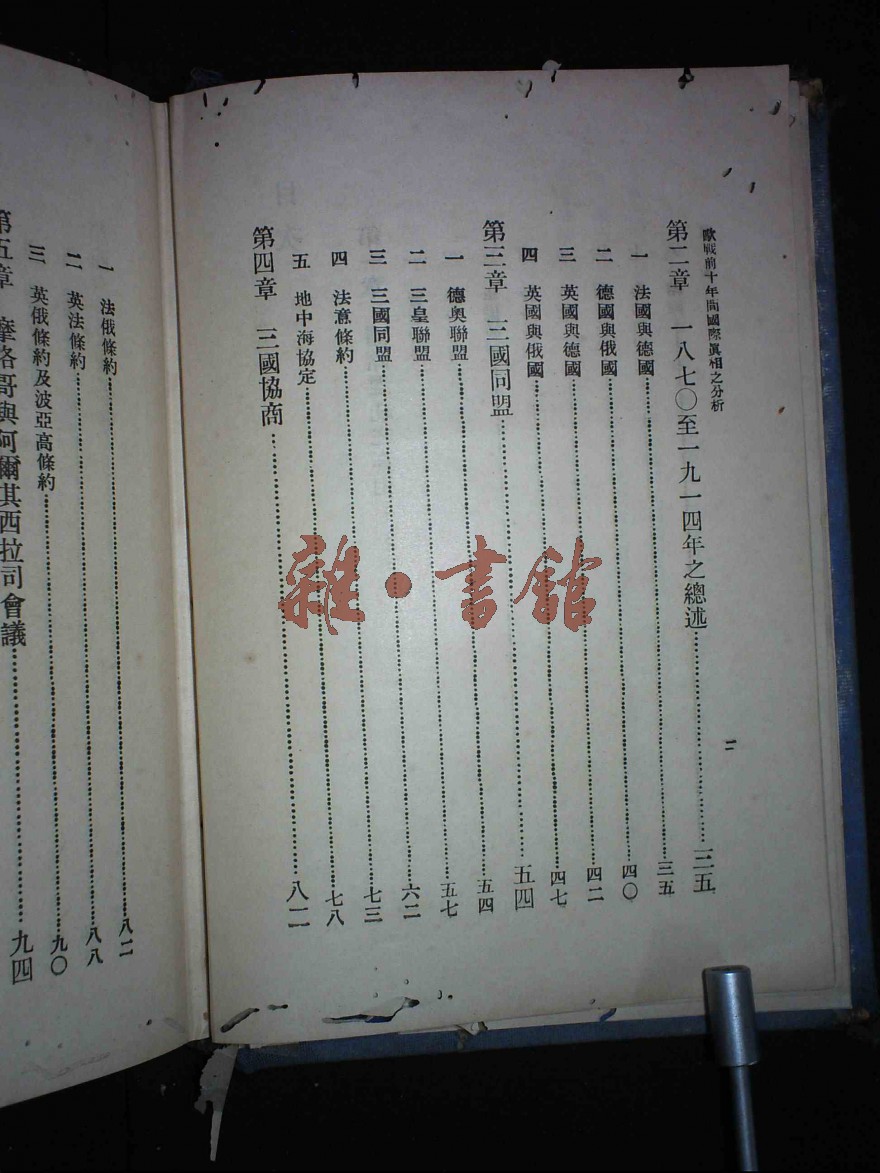 歐戰前十年間國際眞相之分析
二
第二章 一八七〇至一九一四年之總述……三五
一 法國與德國……三五
二 德國與俄國……四〇
三 英國與德國……四二
四 英國與俄國……四七
第三章 三國同盟……五四
一 德奧聯盟……五四
二 三皇聯盟……五七
三 三國同盟……六二
四 法意條約……七三
五 地中海協定……七八
第四章 三國協商……八二
一 法俄條約……八二
二 英法條約……八八
三 英俄條約及波亞高條約……九〇
第五章 摩洛哥與阿爾其西拉司會議……九四
雜·書館